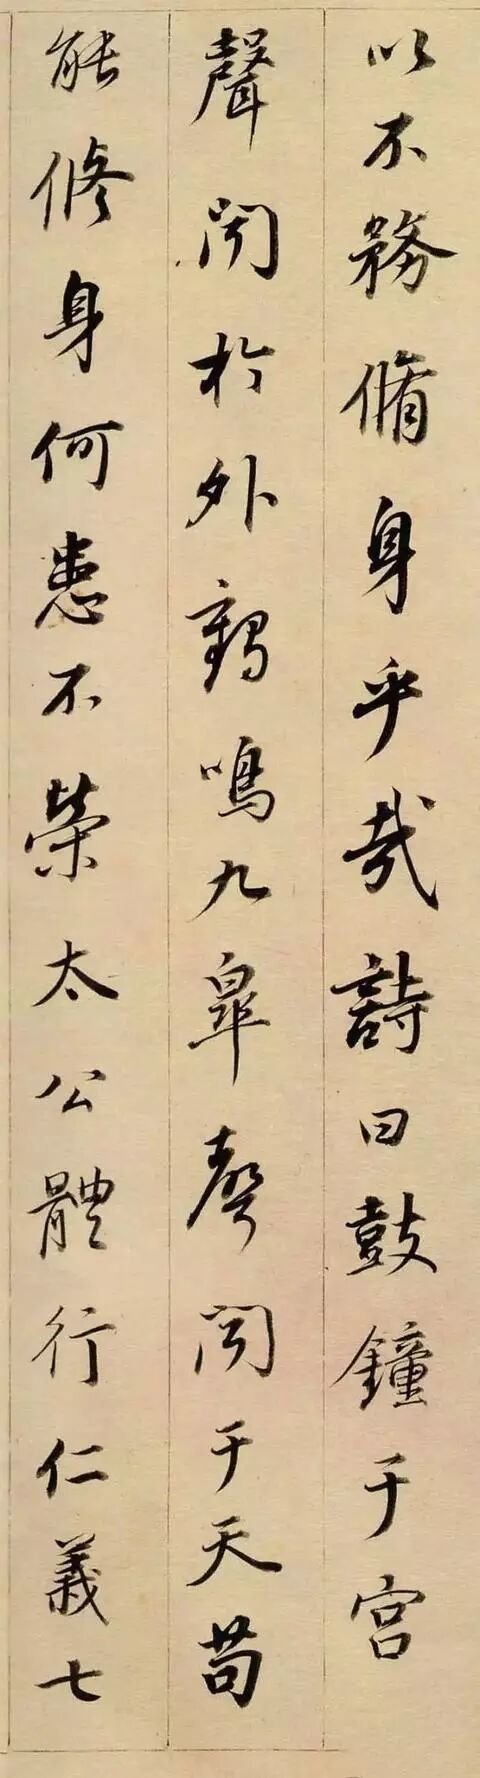 以不務脩身乎哉詩曰鼓鐘于宮
聲聞於外鶴鳴九皐聲聞于天苟
能修身何患不榮太公體行仁義七